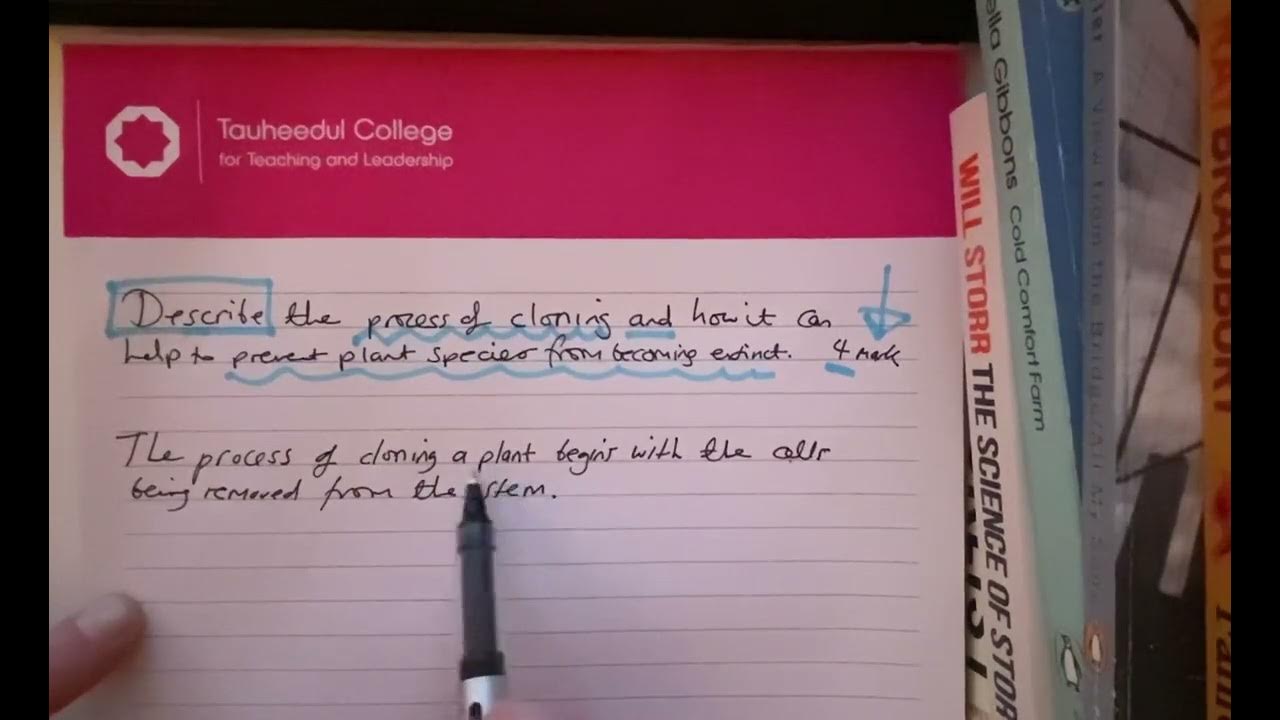 Tauheedul College
for Teaching and Leadership
Describe the process of cloning and how it can
help to prevent plant species from becoming extinct. 4 mark
The process of cloning a plant begins with the cells
being removed from the stem.
ella Gibbons Cold Comfort Farm
WILL STORR THE SCIENCE OF STOR
A View from the Bridge/All My Sons
BRADBURY